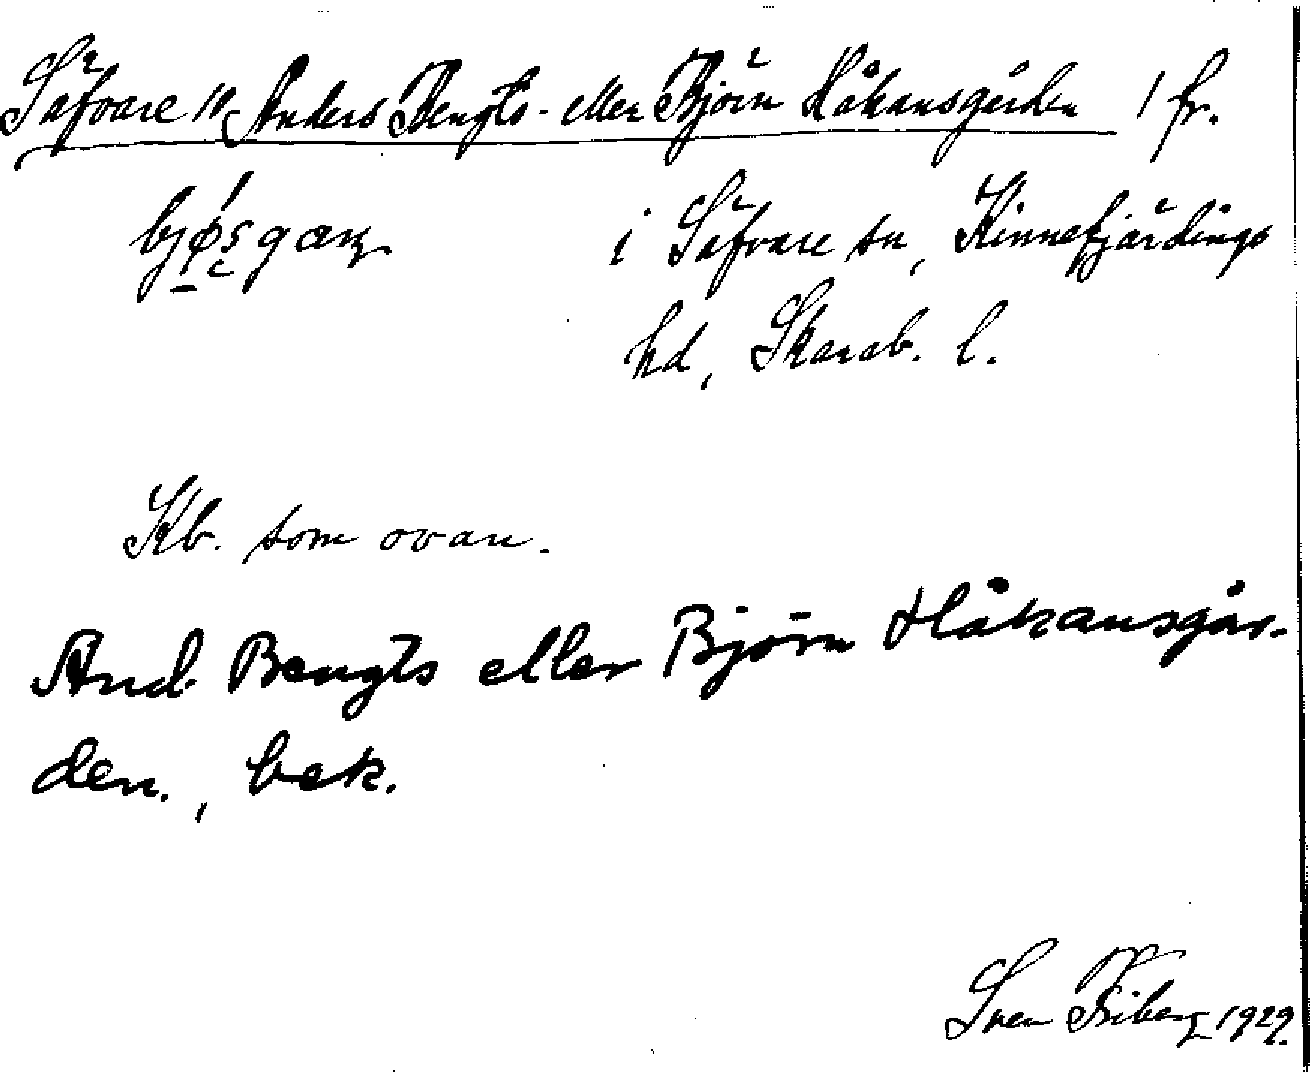 Säfvare 10, Anders Bengts- eller Björn Håkansgården 1 fr.
i Säfvare sn, Kinnefjärdings
hd, Skarab. l.
Kb. som ovan.
And. Bengts eller Björn Håkansgår-
den., bek.
Sven Friberg 1929.